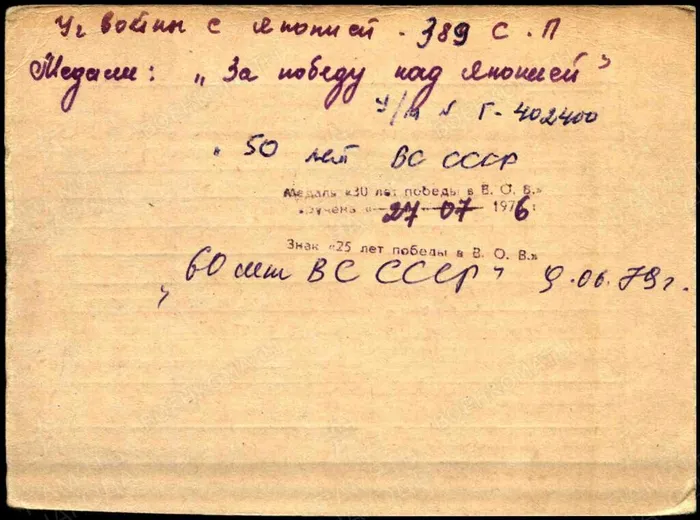 Уч войны с Японией - 389 С.П
Медали: „За победу над Японией"
У/м № Г-402400
„50 лет ВС СССР
Медаль «30 лет победы в В. О. В.»
вручена « 27 07 1976 г
Знак «25 лет победы в В. О. В.»
„60 лет ВС СССР" 9.06.79г.